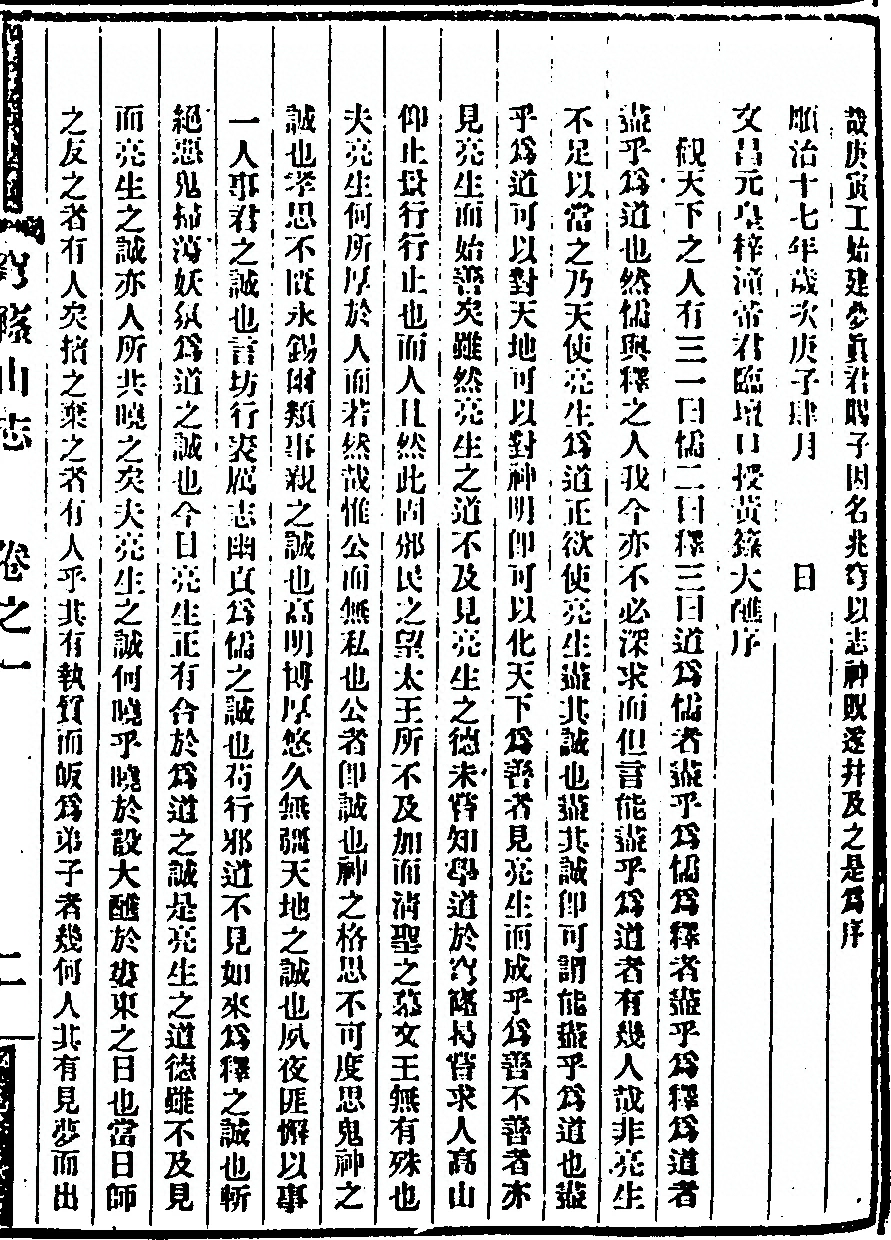 哉庚寅工始建夢眞君賜子因名兆穹以志神貺遂幷及之是爲序
順治十七年歲次庚子肆月　　日
文昌元皇梓潼帝君臨壇口授黃籙大醮序
觀天下之人有三一曰儒二曰釋三曰道爲儒者盡乎爲儒爲釋者盡乎爲釋爲道者
盡乎爲道也然儒與釋之人我今亦不必深求而但言能盡乎爲道者有幾人哉非亮生
不足以當之乃天使亮生爲道正欲使亮生盡其誠也盡其誠卽可謂能盡乎爲道也盡
乎爲道可以對天地可以對神明卽可以化天下爲善者見亮生而成乎爲善不善者亦
見亮生而始善矣雖然亮生之道不及見亮生之德未嘗知學道於穹窿曷嘗求人高山
仰止景行行止也而人且然此固邠民之望太王所不及加而淸聖之慕文王無有殊也
夫亮生何所厚於人而若然哉惟公而無私也公者卽誠也神之格思不可度思鬼神之
誠也孝思不匱永錫爾類事親之誠也高明博厚悠久無疆天地之誠也夙夜匪懈以事
一人事君之誠也言坊行表厲志幽貞爲儒之誠也苟行邪道不見如來爲釋之誠也斬
絕惡鬼掃蕩妖氛爲道之誠也今日亮生正有合於爲道之誠是亮生之道德雖不及見
而亮生之誠亦人所共曉之矣夫亮生之誠何曉乎曉於設大醮於婁東之日也當日師
之友之者有人矣招之棄之者有人乎其有執贄而皈爲弟子者幾何人其有見夢而出
穹窿山志　卷之一　二